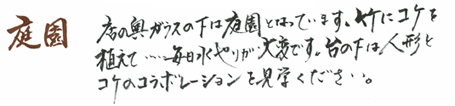 庭園
店の奥ガラスの下は庭園となっています。竹にコケを
植えて‥‥毎日水やりが大変です。台の下は人形と
コケのコラボレーションを見学ください。